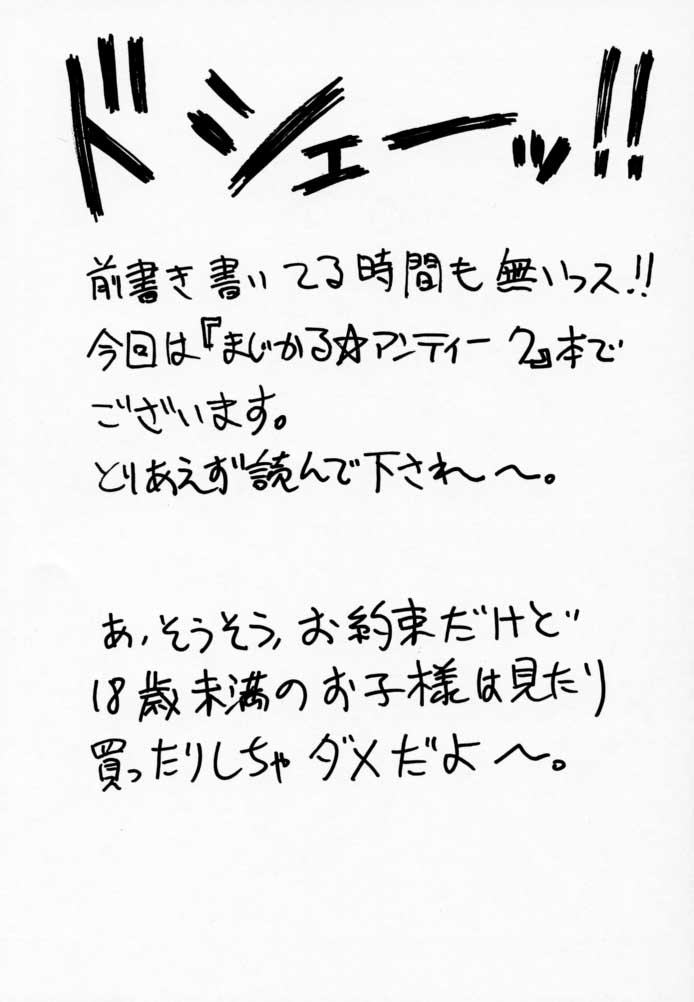 ドシェーッ!!
前書き書いてる時間も無いっス!!
今回は『まじかる☆アンティーク』本で
ございます。
とりあえず読んで下され〜〜。
あ、そうそう、お約束だけど
18歳未満のお子様は見たり
買ったりしちゃダメだよ〜。